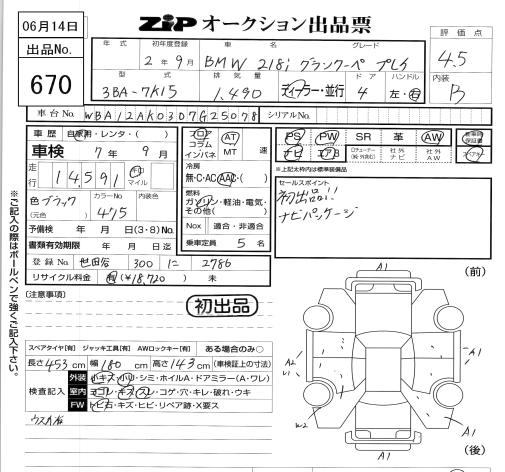 06月14日
ZIP オークション出品票
出品No.
670
年式 初年度登録 車名 グレード 評価点
2年9月 BMW 218i グランクーペ プレイ 4.5
型式 排気量 ドア ハンドル 内装
3BA-7K15 1,490 ディーラー・並行 4 左・右 B
車台No. WBA12AK0307G25078 シリアルNo.
車歴 自家用・レンタ・( )
車検 7年9月
走行 14,591 キロ マイル
フロア コラム インパネ
AT MT 速
冷房
無・C・AC・AAC・( )
燃料
ガソリン・軽油・電気・その他( )
色 ブラック カラーNo. 内装色
(元色) 475
予備検 年 月 日(3・8)No.
Nox 適合・非適合
書類有効期限 年 月 日迄
乗車定員 5 名
登録No. 世田谷 300 に 2786
リサイクル料金 有(¥18,720) 未
PS PW SR 革 AW
ナビ エアB 社外ナビ 社外AW
※上記太枠内は標準装備品
セールスポイント
初出品!!
ナビパッケージ
(注意事項)
初出品
スペアタイヤ[有] ジャッキ工具[有] AWロックキー[有] ある場合のみ○
長さ 453 cm 幅 180 cm 高さ 143 cm (車検証上の寸法)
検査記入
外装 小キズ・小凹・シミ・ホイルA・ドアミラー(A・ワレ)
室内 ヨゴレ・キズ・スレ・コゲ・穴・キレ・破れ・ウキ
FW トビ石・キズ・ヒビ・リペア跡・X要ス
※ご記入の際はボールペンで強くご記入下さい。
A1
(前)
A1
A2
W1
A1
W2
A1
(後)